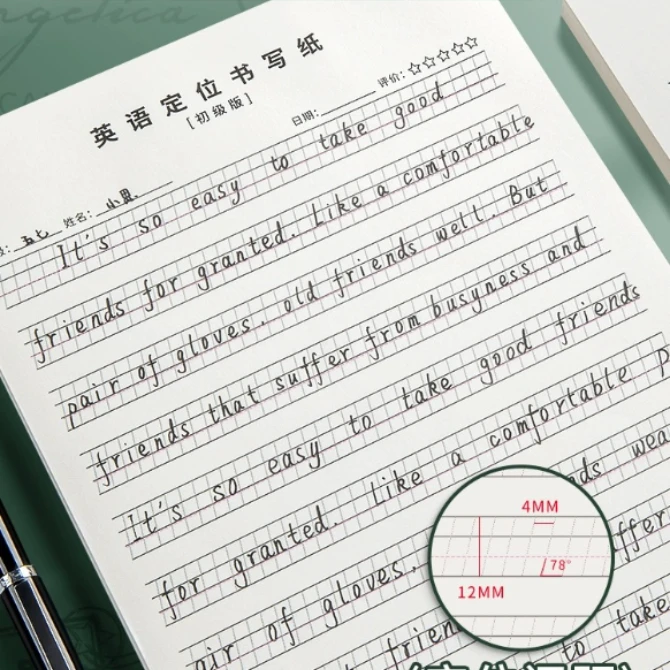 英语定位书写纸
[初级版]
日期: 评价:☆☆☆☆☆
姓名: 小恩
It's so easy to take good
friends for granted. Like a comfortable
pair of gloves. old friends well. But
friends that suffer from busyness and
It's so easy to take good friends
for granted. like a comfortable
pair of gloves.
friends
to take
4MM
78°
12MM